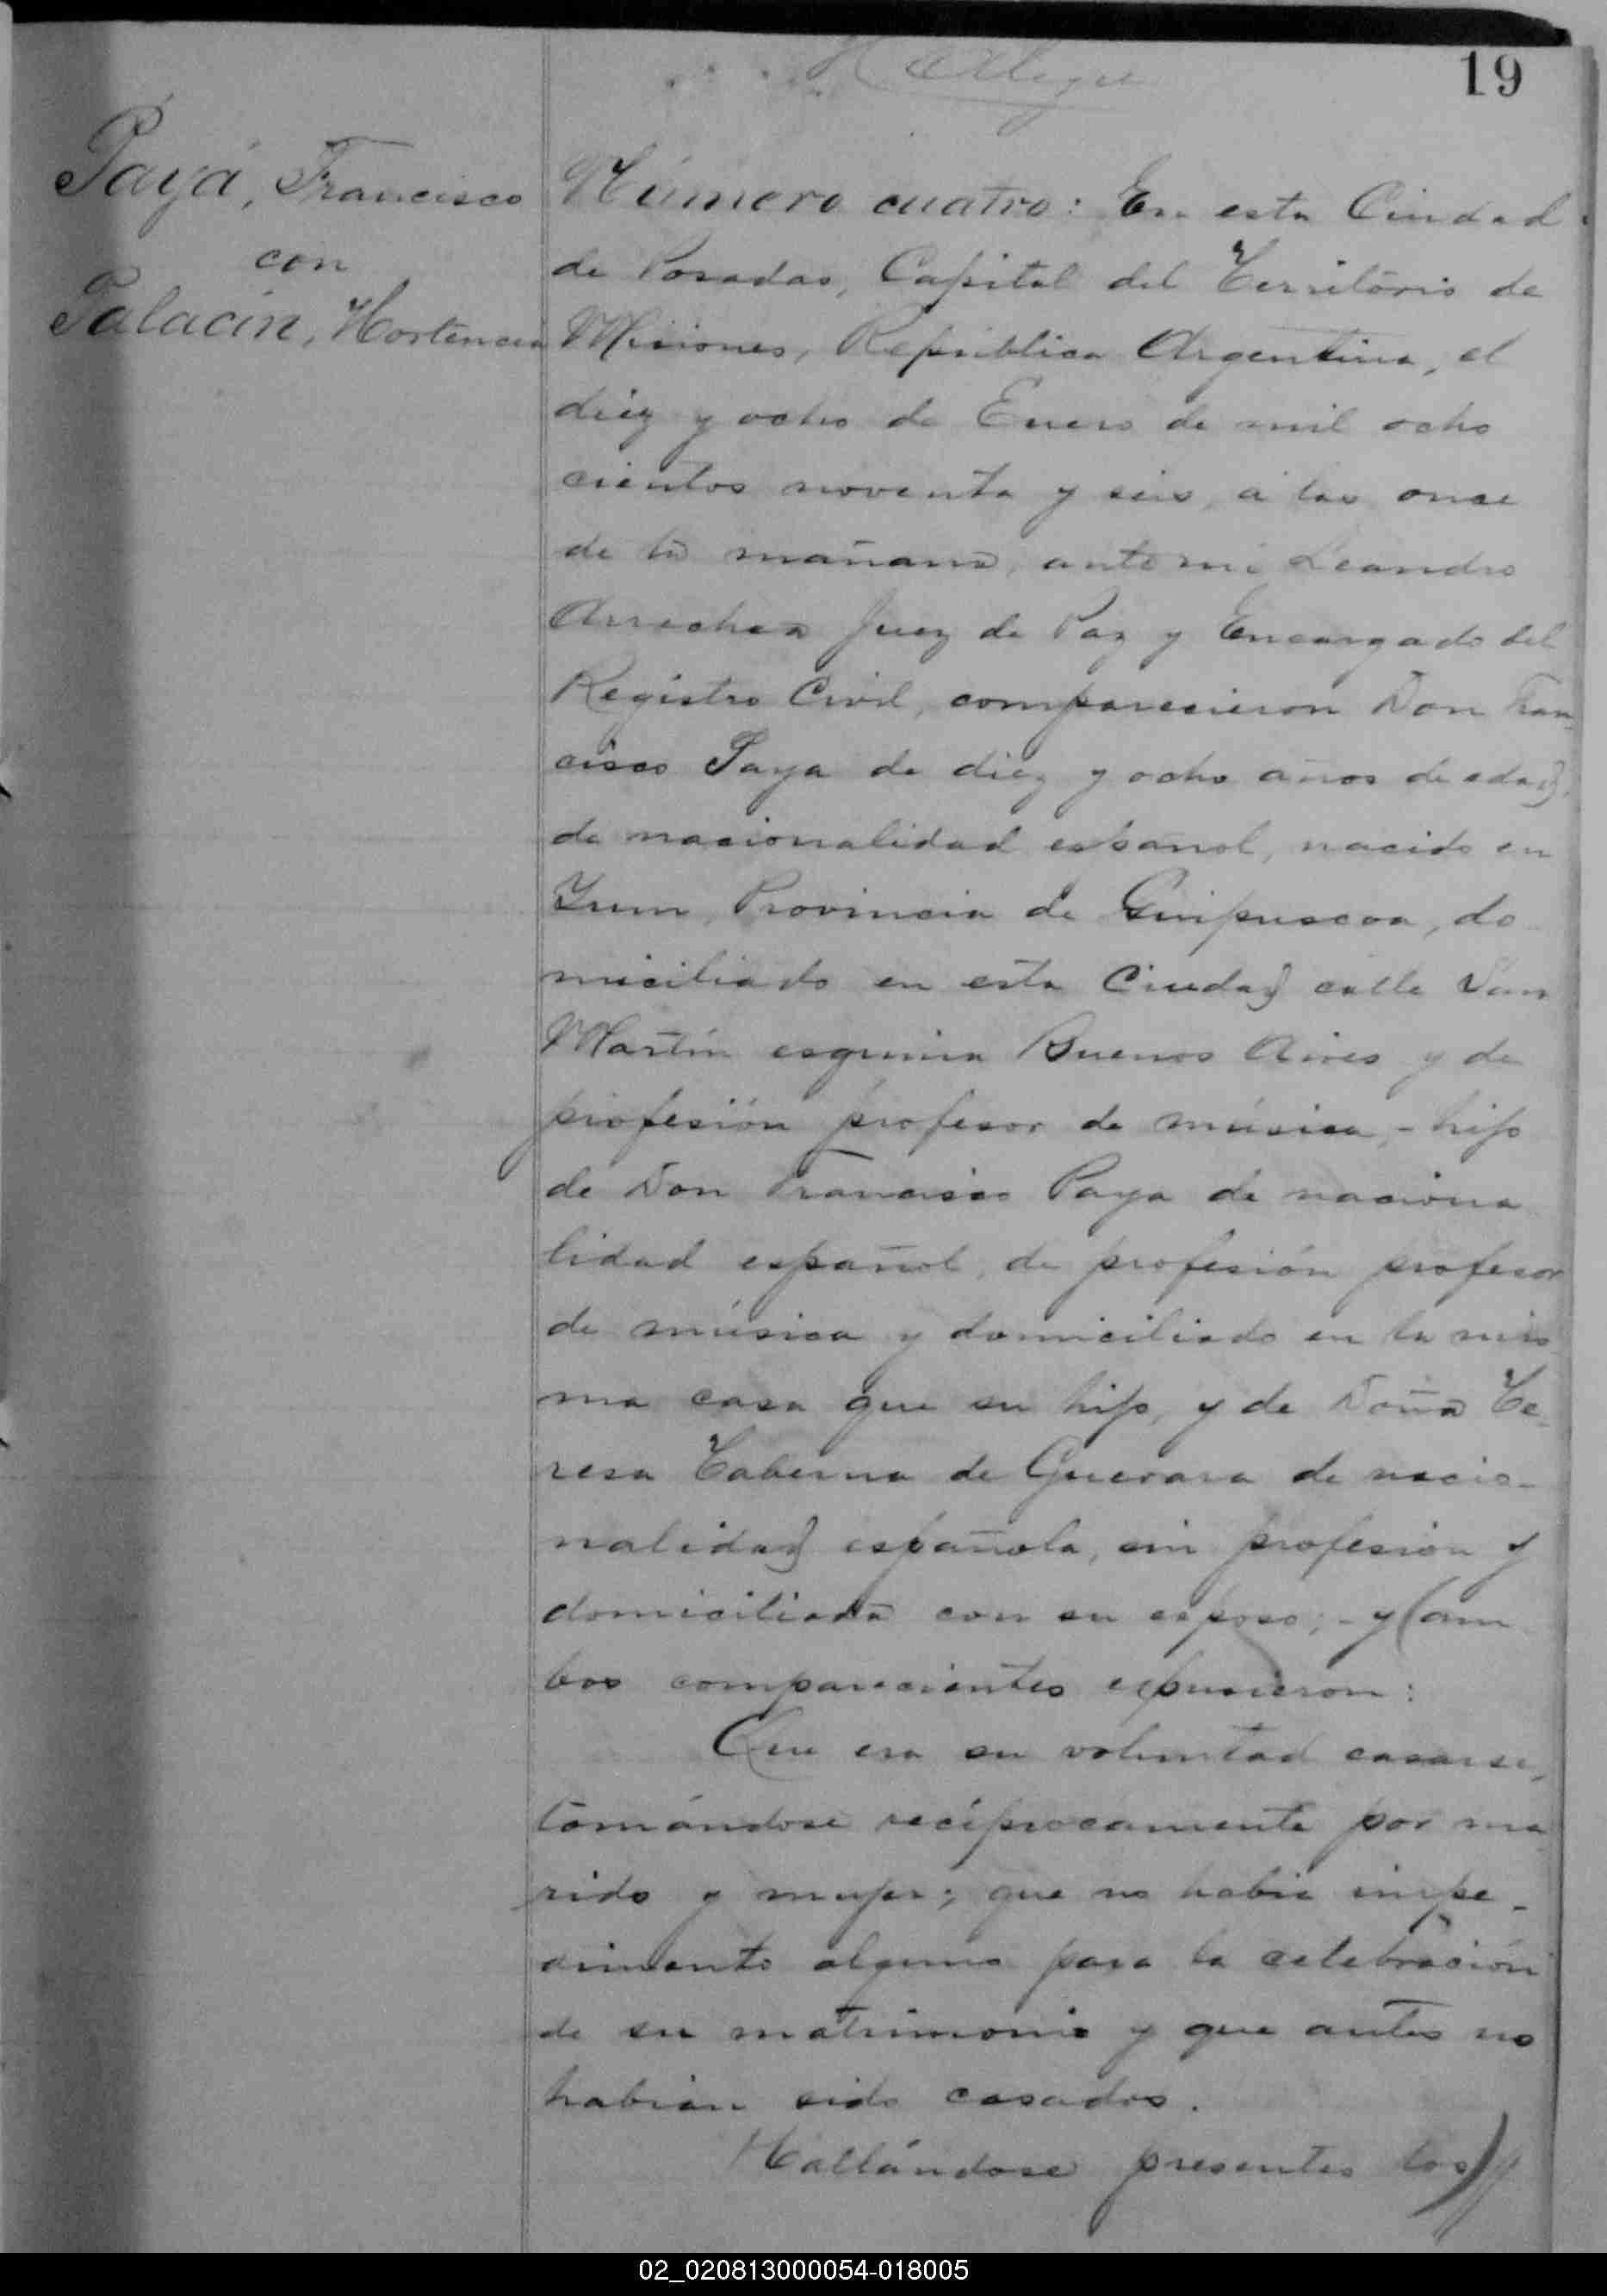 19
Payá, Francisco
con
Palacin, Hortencia
Número cuatro: En esta Ciudad
de Posadas, Capital del Territorio de
Misiones, República Argentina, el
diez y ocho de Enero de mil ocho
cientos noventa y seis, a las once
de la mañana, ante mi Leandro
Arrechea Juez de Paz y Encargado del
Registro Civil, comparecieron Don Fran
cisco Paya de diez y ocho años de edad,
de nacionalidad español, nacido en
Irun, Provincia de Guipuscoa, do
miciliado en esta Ciudad calle San
Martín esquina Buenos Aires y de
profesión profesor de música, - hijo
de Don Francisco Paya de naciona
lidad español, de profesión profesor
de música y domiciliado en la mis
ma casa que su hijo, y de Doña Te-
resa Taberna de Guevara de nacio-
nalidad española, sin profesión y
domiciliada con su esposo; - y (am
bos comparecientes espusieron:
Que era su voluntad casarse,
tomándose recíprocamente por ma
rido y mujer; que no habia impe-
dimento alguno para la celebración
de su matrimonio y que antes no
habian sido casados.
Hallándose presentes los
02_020813000054-018005